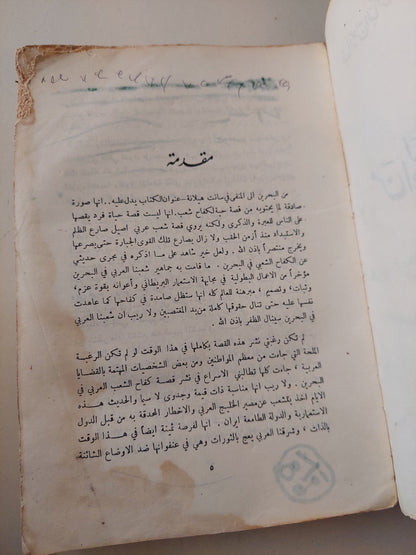 مقدمة
من البحرين الى المنفى في سانت هيلانة - عنوان الكتاب يدل عليه .. انها صورة
صادقة لما يحتويه من قصة حية لكفاح شعب . انها ليست قصة حياة فرد يقصها
على الناس للعبرة والذكرى ولكنه يروي قصة شعب عربي أصيل صارع الظلم
والاستبداد منذ أزمن الحقب ولا زال يصارع تلك القوى الجبارة حتى يصرعها
ويخرج منتصراً باذن الله . ولعل خير شاهد على ما اذكره في مجرى حديثي
عن الكفاح الشعبي في البحرين . ما قامت به جماهير شعبنا العربي في البحرين
مؤخراً من الاعمال البطولية في مجابهة الاستعمار البريطاني وأعوانه بقوة عزم ،
وثبات ، وتصميم ، مبرهنة للعالم كله انها ستظل صامدة في كفاحها كما عاهدت
نفسها عليه حتى تنال حقوقها كاملة من يد المغتصبين ولا ريب ان شعبنا العربي
في البحرين سينال الظفر بإذن الله .
لم تكن رغبتي نشر هذه القصة بكاملها في هذا الوقت لو لم تكن الرغبة
الملحة التي جاءت من معظم المواطنين ومن بعض الشخصيات المهتمة بالقضايا
العربية ، جاءت كلها تطالبني الاسراع في نشر قصة كفاح الشعب العربي في
البحرين . ولا ريب انها مناسبة ذات قيمة وجدوى لا سيما والحديث هذه
الايام اخذ يتشعب عن مصير الخليج العربي والاخطار المحدقة به من قبل الدول
الاستعمارية والدولة الطامعة ايران . انها لفرصة ثمينة ايضاً في هذا الوقت
بالذات ، وشرقنا العربي يعج بالثورات وهي في عنفوانها ضد الاوضاع الشائنة
٥